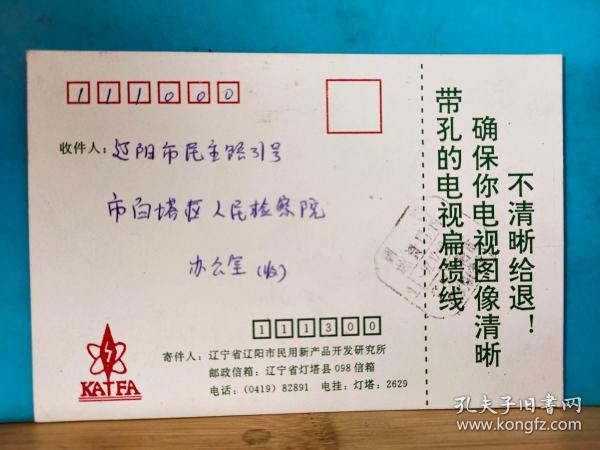 111000
收件人：辽阳市民主路31号
市白塔区人民检察院
办公室（收）
111300
寄件人：辽宁省辽阳市民用新产品开发研究所
邮政信箱：辽宁省灯塔县098信箱
电话：(0419) 82891 电挂：灯塔：2629
KATFA
不清晰给退！
确保你电视图像清晰
带孔的电视扁馈线
孔夫子旧书网
www.kongfz.com